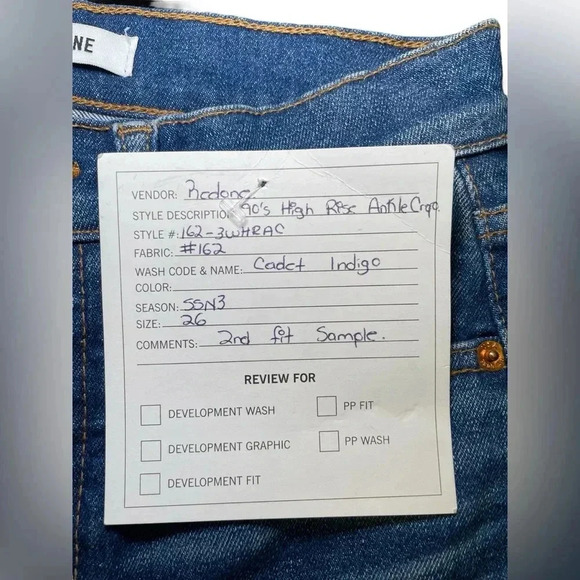 NE
VENDOR: Redone
STYLE DESCRIPTION 90's High Rise Ankle Crop.
STYLE #: 162-3WHRAC
FABRIC: #162
WASH CODE & NAME: Cadet Indigo
COLOR:
SEASON: SSN3
SIZE: 26
COMMENTS: 2nd fit Sample.
REVIEW FOR
DEVELOPMENT WASH
PP FIT
DEVELOPMENT GRAPHIC
PP WASH
DEVELOPMENT FIT